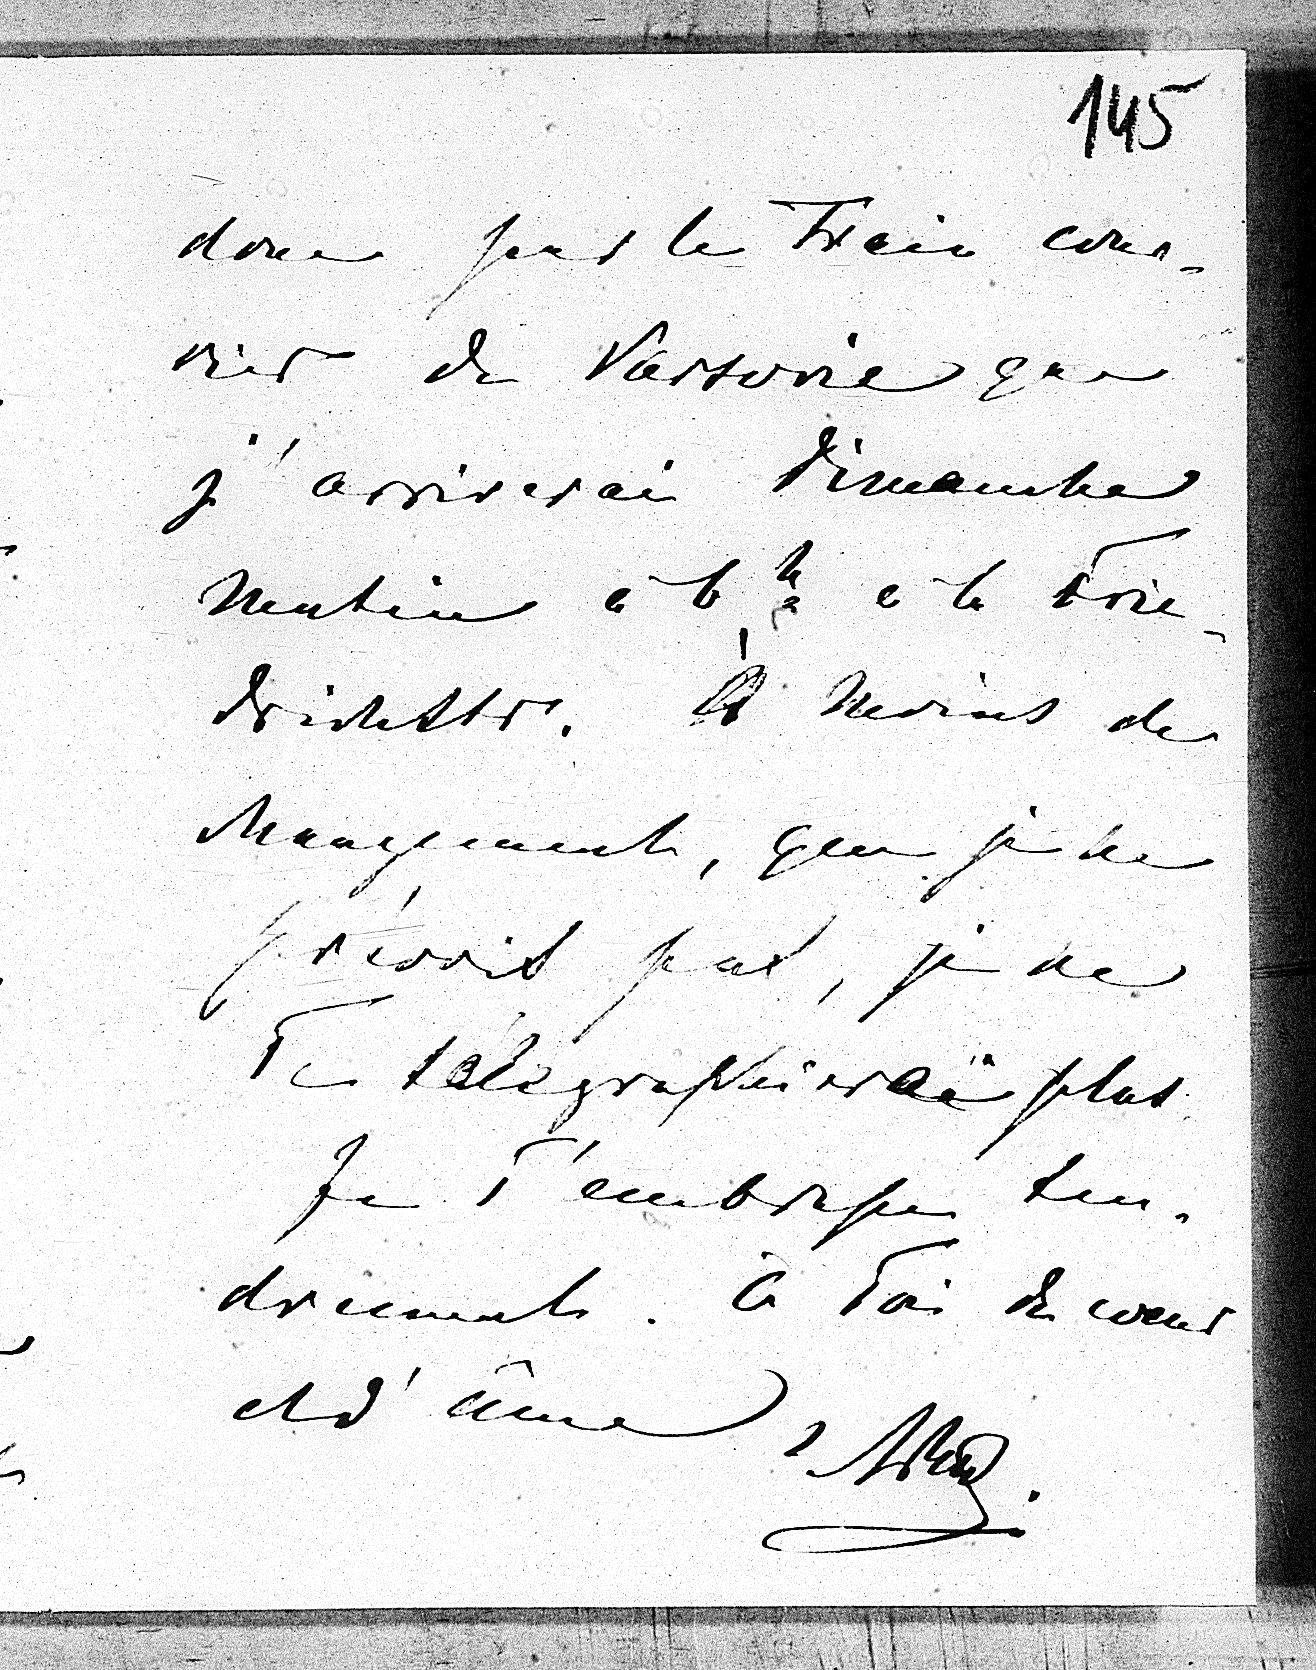 145
donc par le Train cour-
rier de Varsovie que
j'arriverai Dimanche
Matin à 6 h à la Frie-
drichstr. À Moins de
changements, que je ne
prévois pas, je ne
Te télégraphierai plus.
Je T'embrasse ten-
drement. à Toi de coeur
et d'âme,